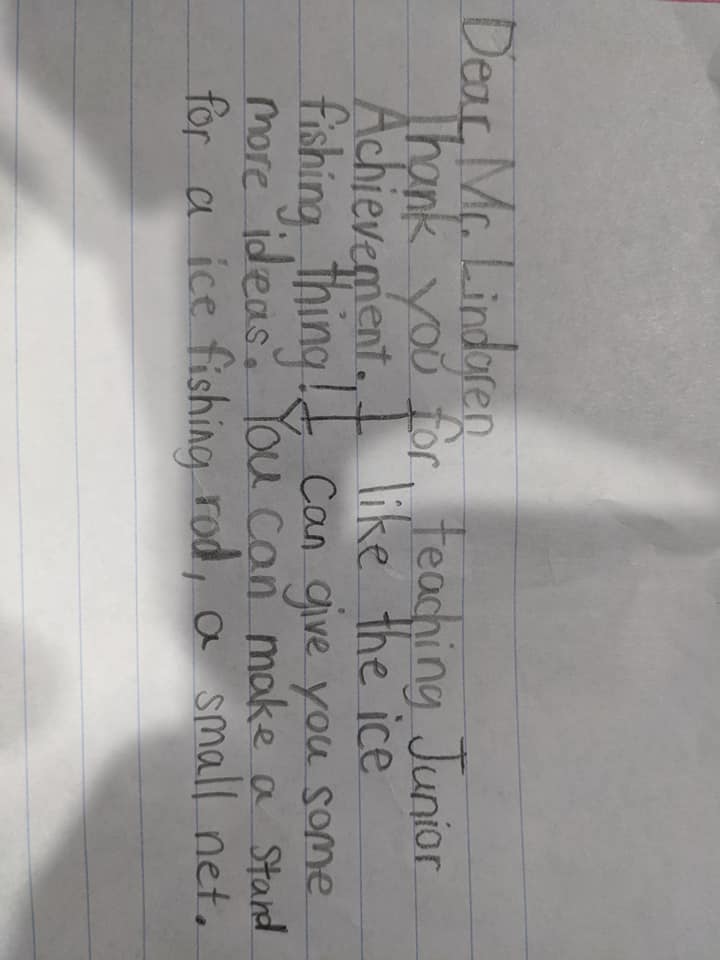 Dear, Mr. Lindgren
Thank you for teaching Junior
Achievement. I like the ice
fishing thing! I can give you some
more ideas. You can make a stand
for a ice fishing rod, a small net.